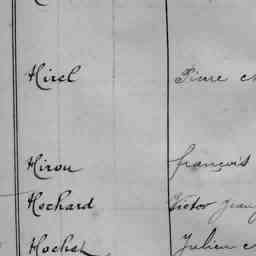 Hirel Pierre
Hirou françois
Hochard Victor Jean
Hochet Julien